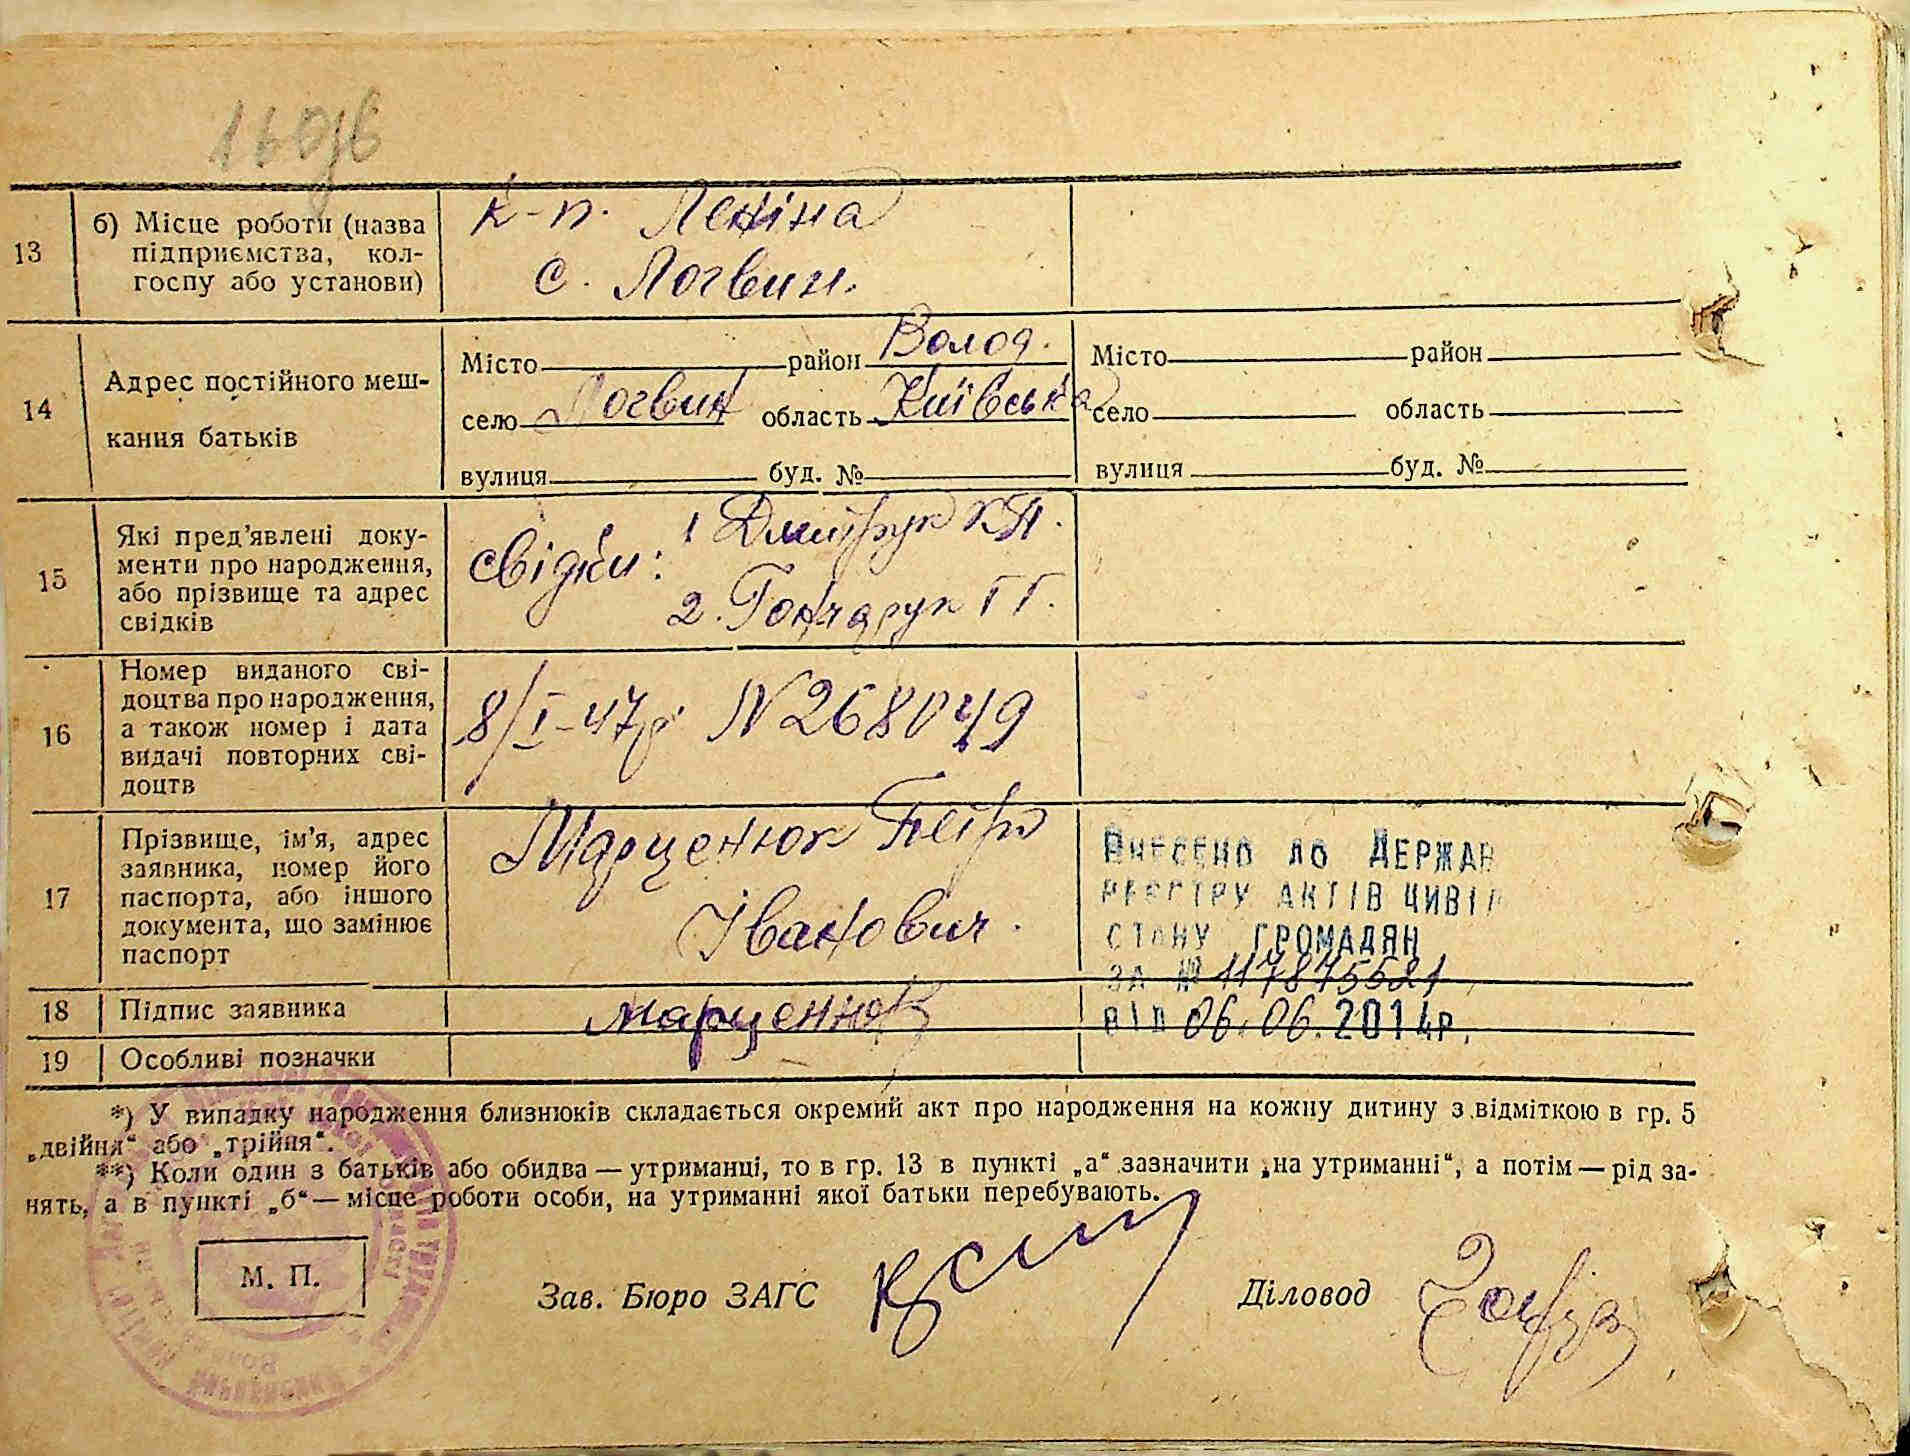 160зв
13 б) Місце роботи (назва підприємства, колгоспу або установи) к-п. Леніна
с. Логвин.
14 Адрес постійного мешкання батьків
Місто район Волод. Місто район
село Логвин область Київська село область
вулиця буд. № вулиця буд. №
15 Які пред'явлені документи про народження, або прізвище та адрес свідків
свідки: 1 Дмитрук К П.
2. Гончарук Г Г.
16 Номер виданого свідоцтва про народження, а також номер і дата видачі повторних свідоцтв
8/I-47р. N268049
17 Прізвище, ім'я, адрес заявника, номер його паспорта, або іншого документа, що замінює паспорт
Марценюк Петро
Іванович.
Внесено до Держав
реєстру актів цивіл
стану громадян
за № 117875521
18 Підпис заявника Марценюк
від 06.06.2014р.
19 Особливі позначки
*) У випадку народження близнюків складається окремий акт про народження на кожну дитину з відміткою в гр. 5
„двійня“ або „трійня“.
**) Коли один з батьків або обидва — утриманці, то в гр. 13 в пункті „а“ зазначити „на утриманні“, а потім — рід за-
нять, а в пункті „б“ — місце роботи особи, на утриманні якої батьки перебувають.
М. П.
Зав. Бюро ЗАГС Діловод